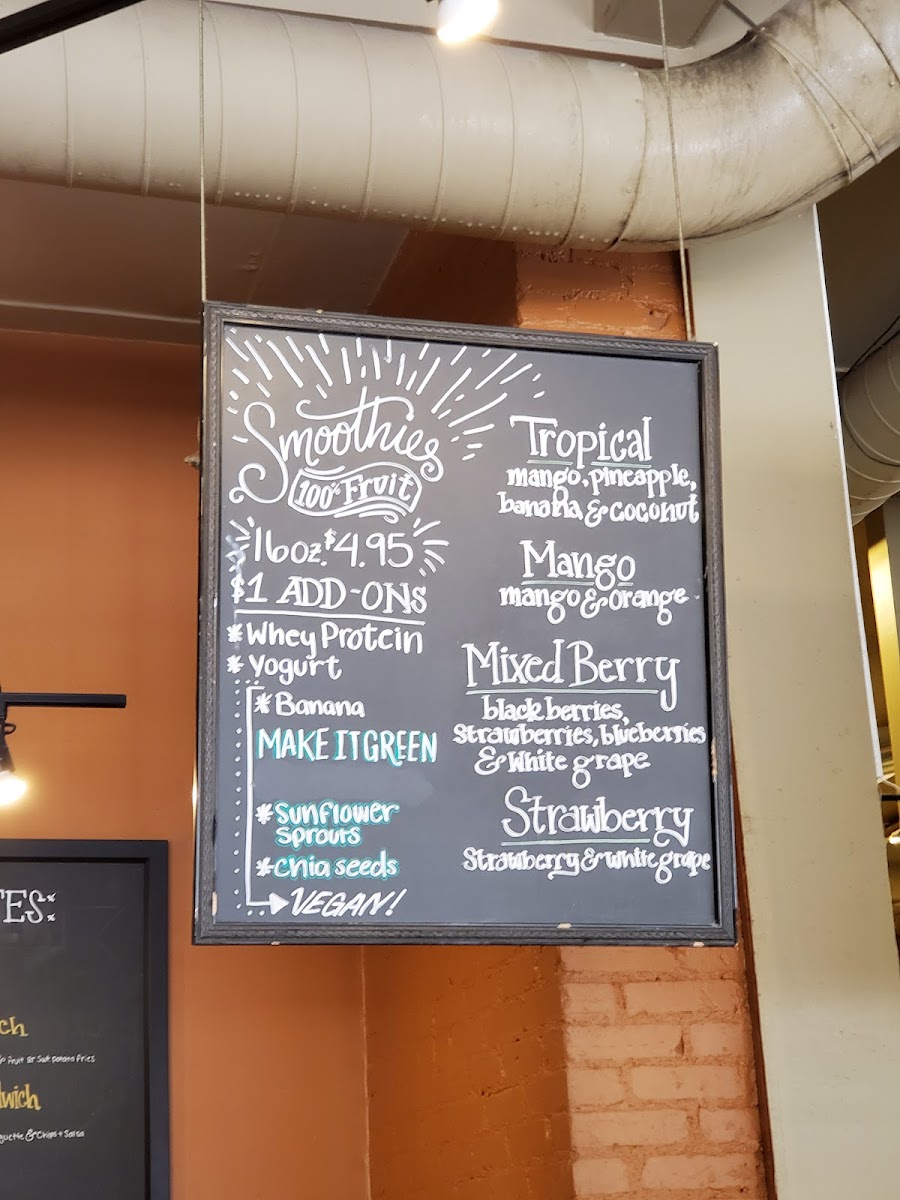 Smoothies
100% Fruit
16oz. $4.95
$1 ADD-ONS
* Whey Protein
* Yogurt
* Banana
MAKE IT GREEN
* Sunflower
Sprouts
* Chia seeds
VEGAN!
Tropical
mango, pineapple,
banana & coconut
Mango
mango & orange
Mixed Berry
blackberries,
Strawberries, blueberries
& white grape
Strawberry
Strawberry & white grape
TES:
ch
Fruit or Swt. potato Fries
wich
guette & Chips + Salsa